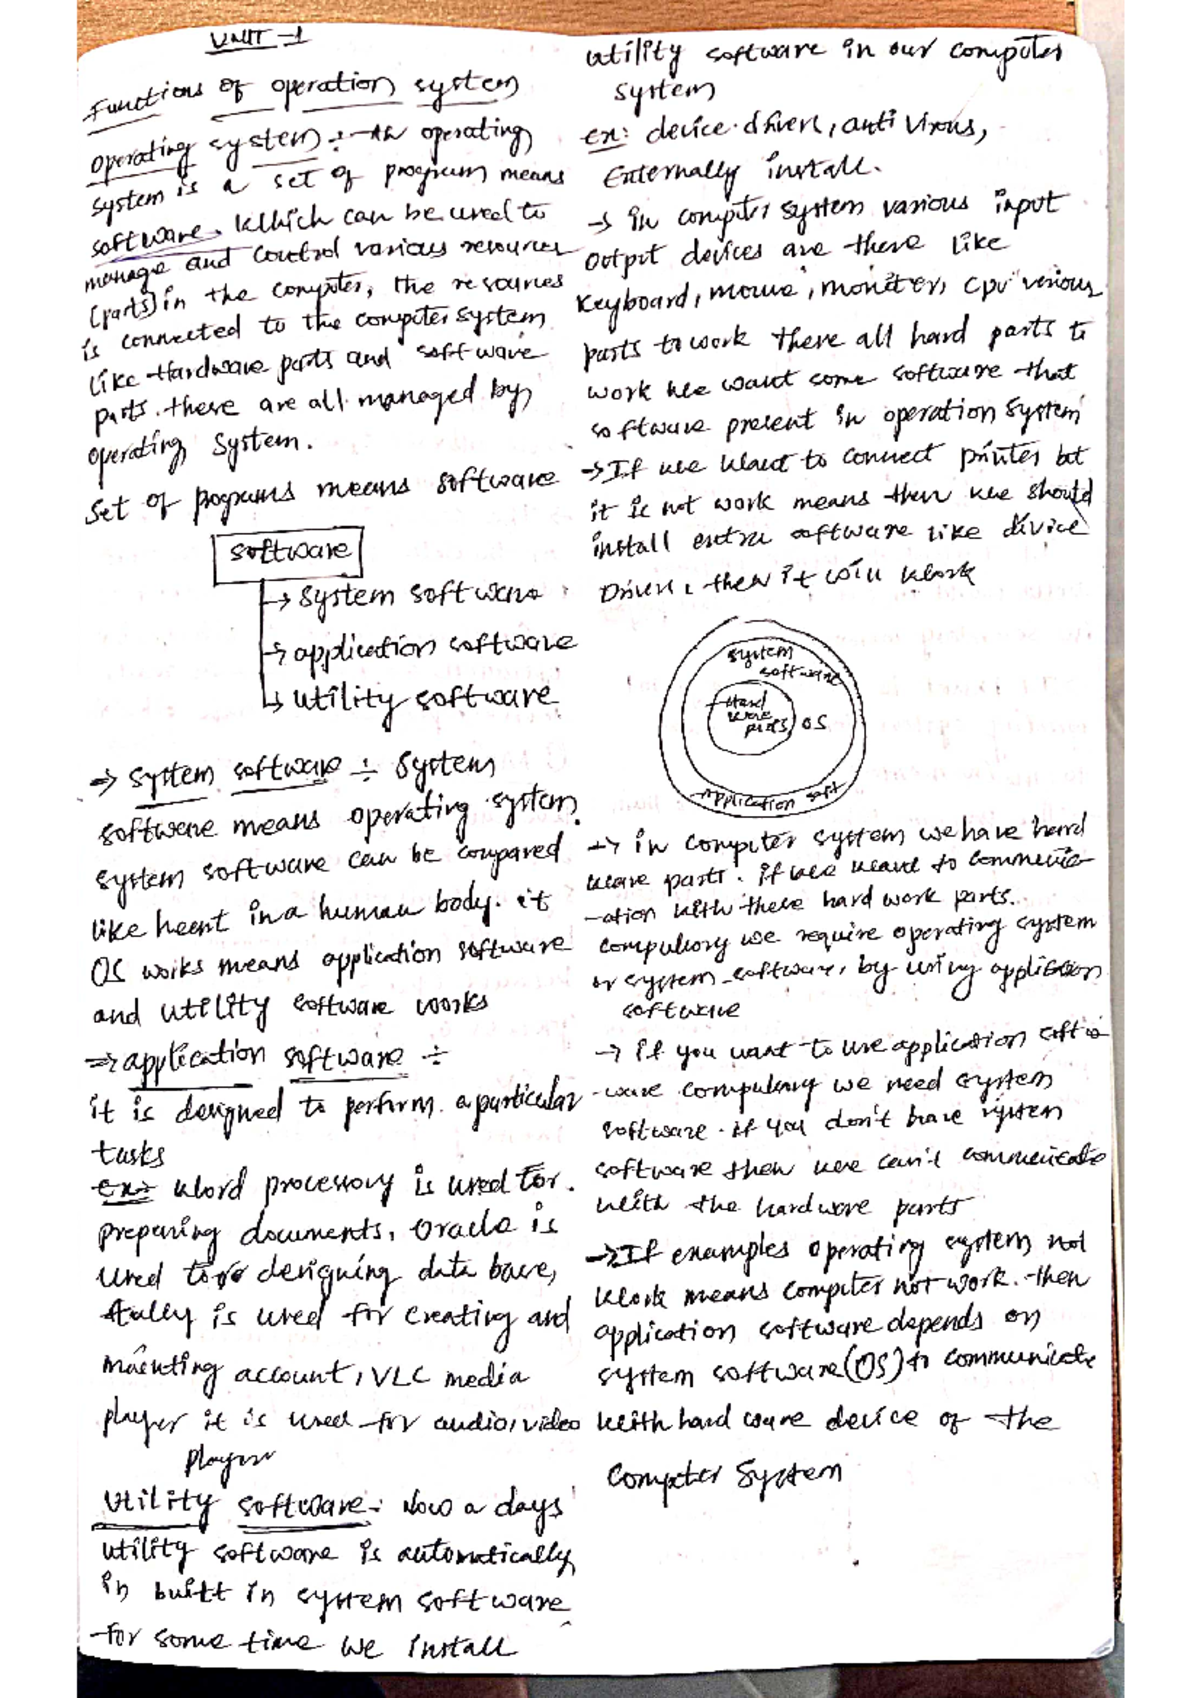 UNIT-1
Functions of operation system
operating system ÷ An operating
system is a set of program means
software. Which can be used to
manage and control various resources
(parts) in the computer, the resources
is connected to the computer system
like Hardware parts and software
parts. these are all managed by
operating System.
Set of programs means software
software
→ system software
→ application software
→ utility software
⇒ system software ÷ System
software means operating system.
system software can be compared
like heart in a human body. it
OS works means application software
and utility software works
⇒ application software ÷
it is designed to perform a particular
tasks
ex:- Word processory is used for.
preparing documents, Oracle is
used to designing data base,
tally is used for creating and
account, VLC media
player it is used for audio, video
player
Utility software:- Now a days
utility software is automatically
in built in system software
for some time we install
utility software in our computer
system
ex: device drivers, anti virous,
Externally install.
→ in computer system various input
output devices are there like
Keyboard, mouse, moniter, cpu various
parts to work there all hard parts to
work we want some software that
software present in operation system
→ If we want to connect printer but
it is not work means then we should
install extra software like divice
Driver, then it will work
system
software
Hard
ware
parts
OS
Application soft
→ in computer system we have hard
ware parts. if we want to communic
-ation with these hard work parts.
compulsory we require operating system
or system software, by using application
software
→ if you want to use application softw
-ware compulsary we need system
software. if you don't have system
software then we can't communicate
with the hardware parts
→ If examples operating system not
work means computer not work. then
application software depends on
system software (OS) to communicate
with hard ware device of the
Computer System